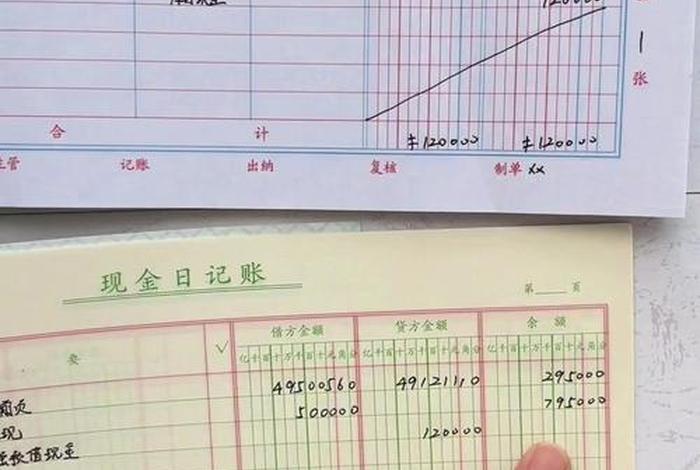 120000
1
张
合 计 ¥120000 ¥120000
主管 记账 出纳 复核 制单 xx
现金日记账
第 页
要 √ 借方金额 贷方金额 余 额
亿千百十万千百十元角分 亿千百十万千百十元角分 亿千百十万千百十元角分
49500560 49121110 295000
前页 500000 795000
现 120000
现金